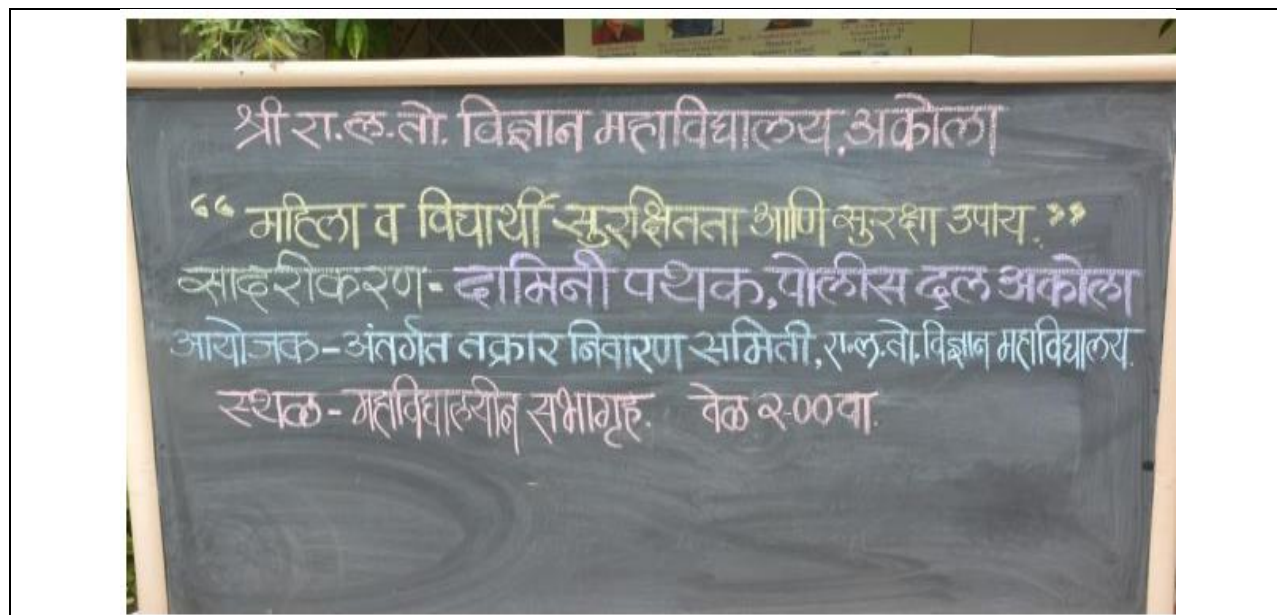 श्री रा.ल.तो. विज्ञान महाविद्यालय, अकोला
“ महिला व विद्यार्थी सुरक्षितता आणि सुरक्षा उपाय. ”
सादरीकरण- दामिनी पथक, पोलीस दल अकोला
आयोजक-अंतर्गत तक्रार निवारण समिती, रा.ल.तो. विज्ञान महाविद्यालय.
स्थळ - महाविद्यालयीन सभागृह. वेळ २-०० वा.